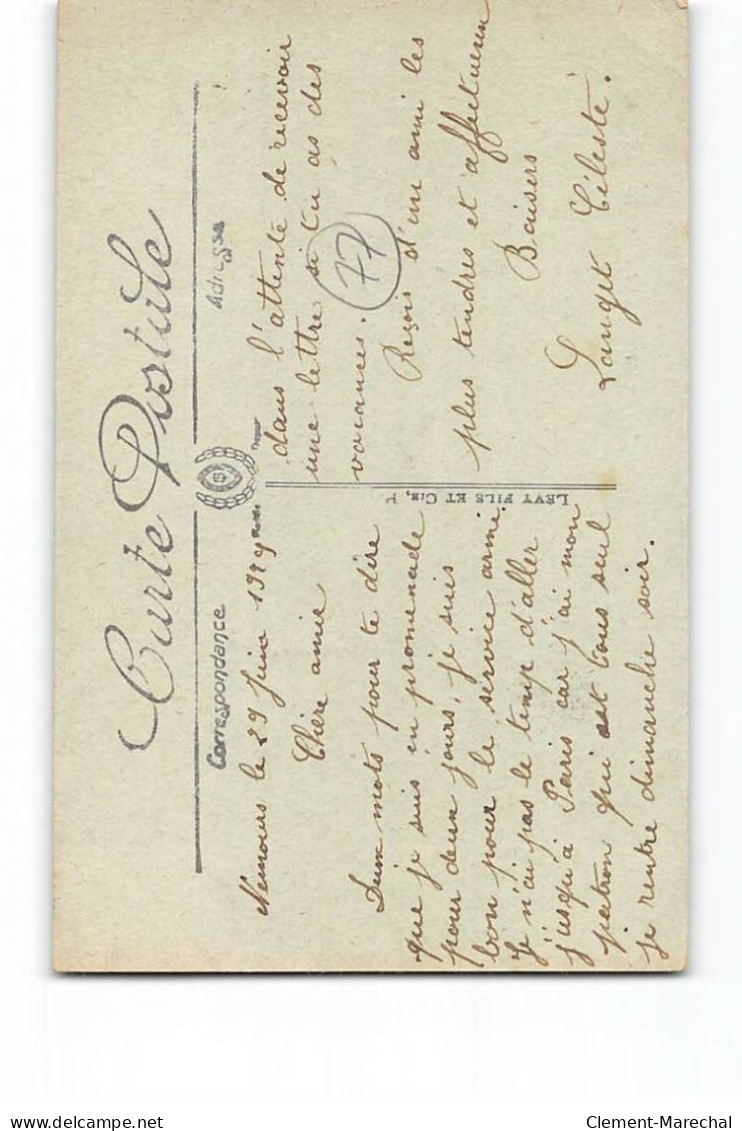 Carte Postale
Correspondance
Adresse
Nemours le 29 Juin
Chère amie
Deux mots pour te dire
que je suis en promenade
pour deux jours, je suis
bon pour le service armé
Je n'ai pas le temp d'aller
j'usqu'à Paris car j'ai mon
patron qui est tous seul
je rentre dimanche soir.
LEVY FILS ET CIE, P
dans l'attente de recevoir
une lettre si tu as des
vacances.
77
Reçois d'un ami les
plus tendres et affectueux
Baisers
Céleste.
Clement-Marechal